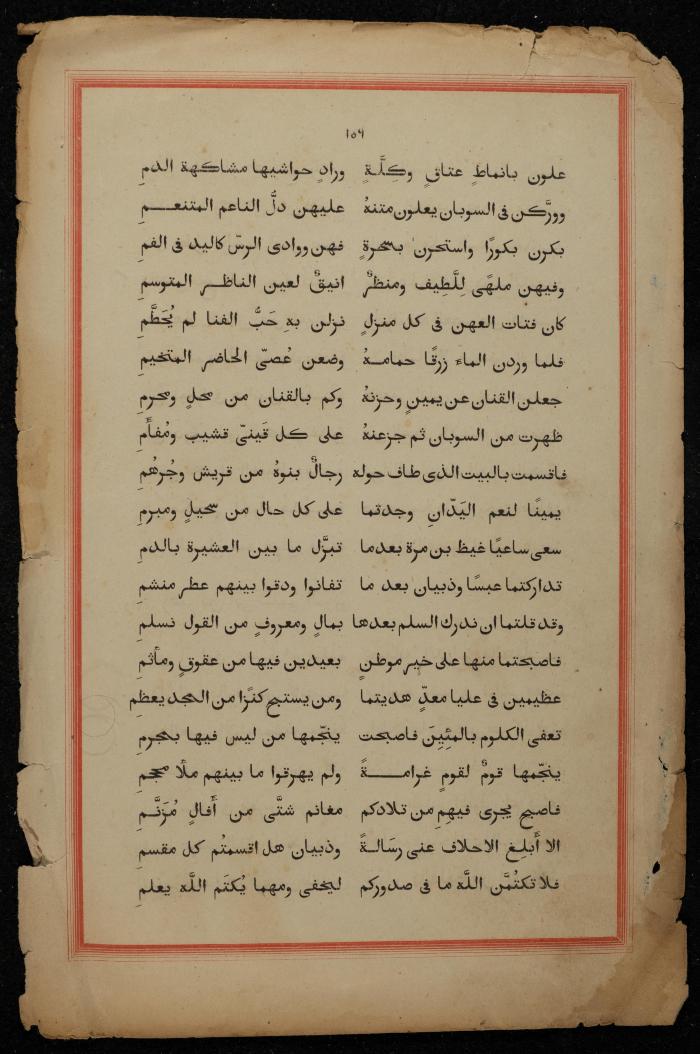 ١٥٦
علون بانماطٍ عتاقٍ وكِلَّةٍ ورادٍ حواشيها مشاكهة الدمِ
وورَّكن فى السوبان يعلون متنهُ عليهن دلُّ الناعم المتنعــمِ
بكرن بكورًا واستحرن بسحرةٍ فهن ووادى الرسّ كاليد فى الفمِ
وفيهن ملهًى لِلَّطِيف ومنظرٌ انيقٌ لعين الناظــر المتوسمِ
كان فتات العهن فى كل منزلٍ نزلن بهِ حَبُّ الفنا لم يُحَطَّمِ
فلما وردن الماء زرقًا حمامــهُ وضعن عُصىّ الحاضر المتخيمِ
جعلن القنان عن يمينٍ وحزنهُ وكم بالقنان من محلٍ ومحرمِ
ظهرت من السوبان ثم جزعنهُ على كل قَينىّ قشيب ومُفأَمِ
فاقسمت بالبيت الذى طاف حوله رجالٌ بنوهُ من قريش وجُرهُمِ
يمينًا لنعم اليَدّانِ وجدتما على كل حال من سحيلٍ ومبرمِ
سعى ساعيًا غيظ بن مرة بعدما تبزَّل ما بين العشيرة بالدمِ
تداركتما عبسًا وذبيان بعد ما تفانوا ودقوا بينهم عطر منشمِ
وقد قلتما ان ندرك السلم بعدها بمالٍ ومعروفٍ من القول نسلمِ
فاصبحتما منها على خير موطنٍ بعيدين فيها من عقوقٍ ومأثمِ
عظيمين فى عليا معدٍّ هديتما ومن يستبح كنزًا من المجد يعظمِ
تعفى الكلوم بالمئِينَ فاصبحت ينجّمها من ليس فيها بمجرمِ
ينجّمها قومٌ لقومٍ غرامــةً ولم يهرقوا ما بينهم ملأ محجمِ
فاصبح يجرى فيهمِ من تلادكم مغانم شتَّى من أَفالٍ مُزَنَّــمِ
الا أَبلِغ الاحلاف عنى رسَالــةً وذبيان هل اقسمتُم كل مقسمِ
فلا تكتُمُن اللَّه ما فى صدوركم ليخفى ومهما يُكتَم اللَّه يعلمِ